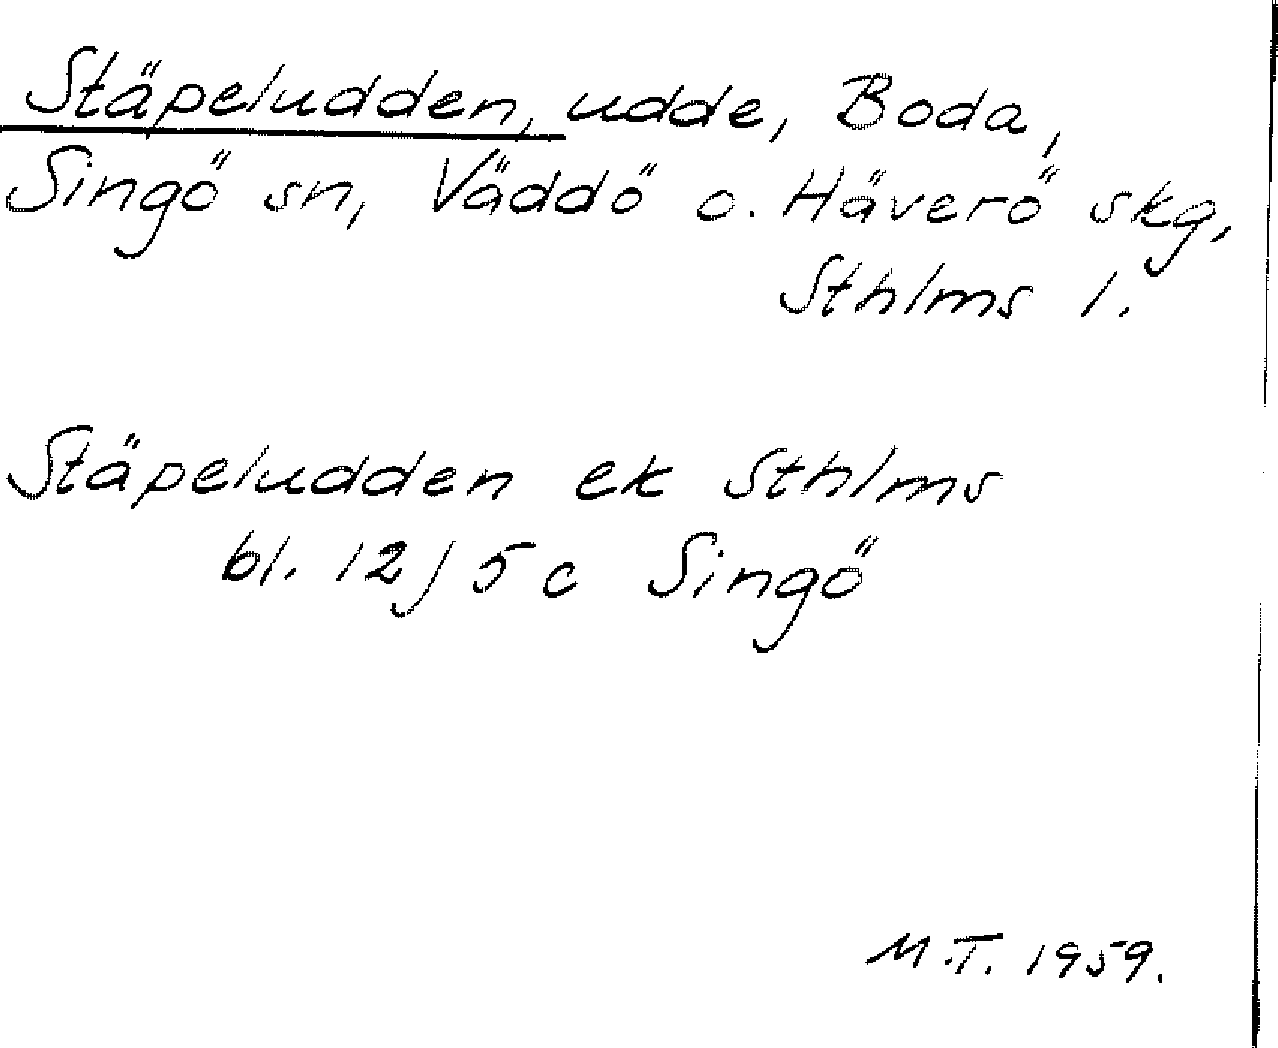 Stäpeludden, udde, Boda,
Singö sn, Väddö o. Häverö skg,
Sthlms l.
Stäpeludden ek Sthlms
bl. 12 J 5 c Singö
M.T. 1959.